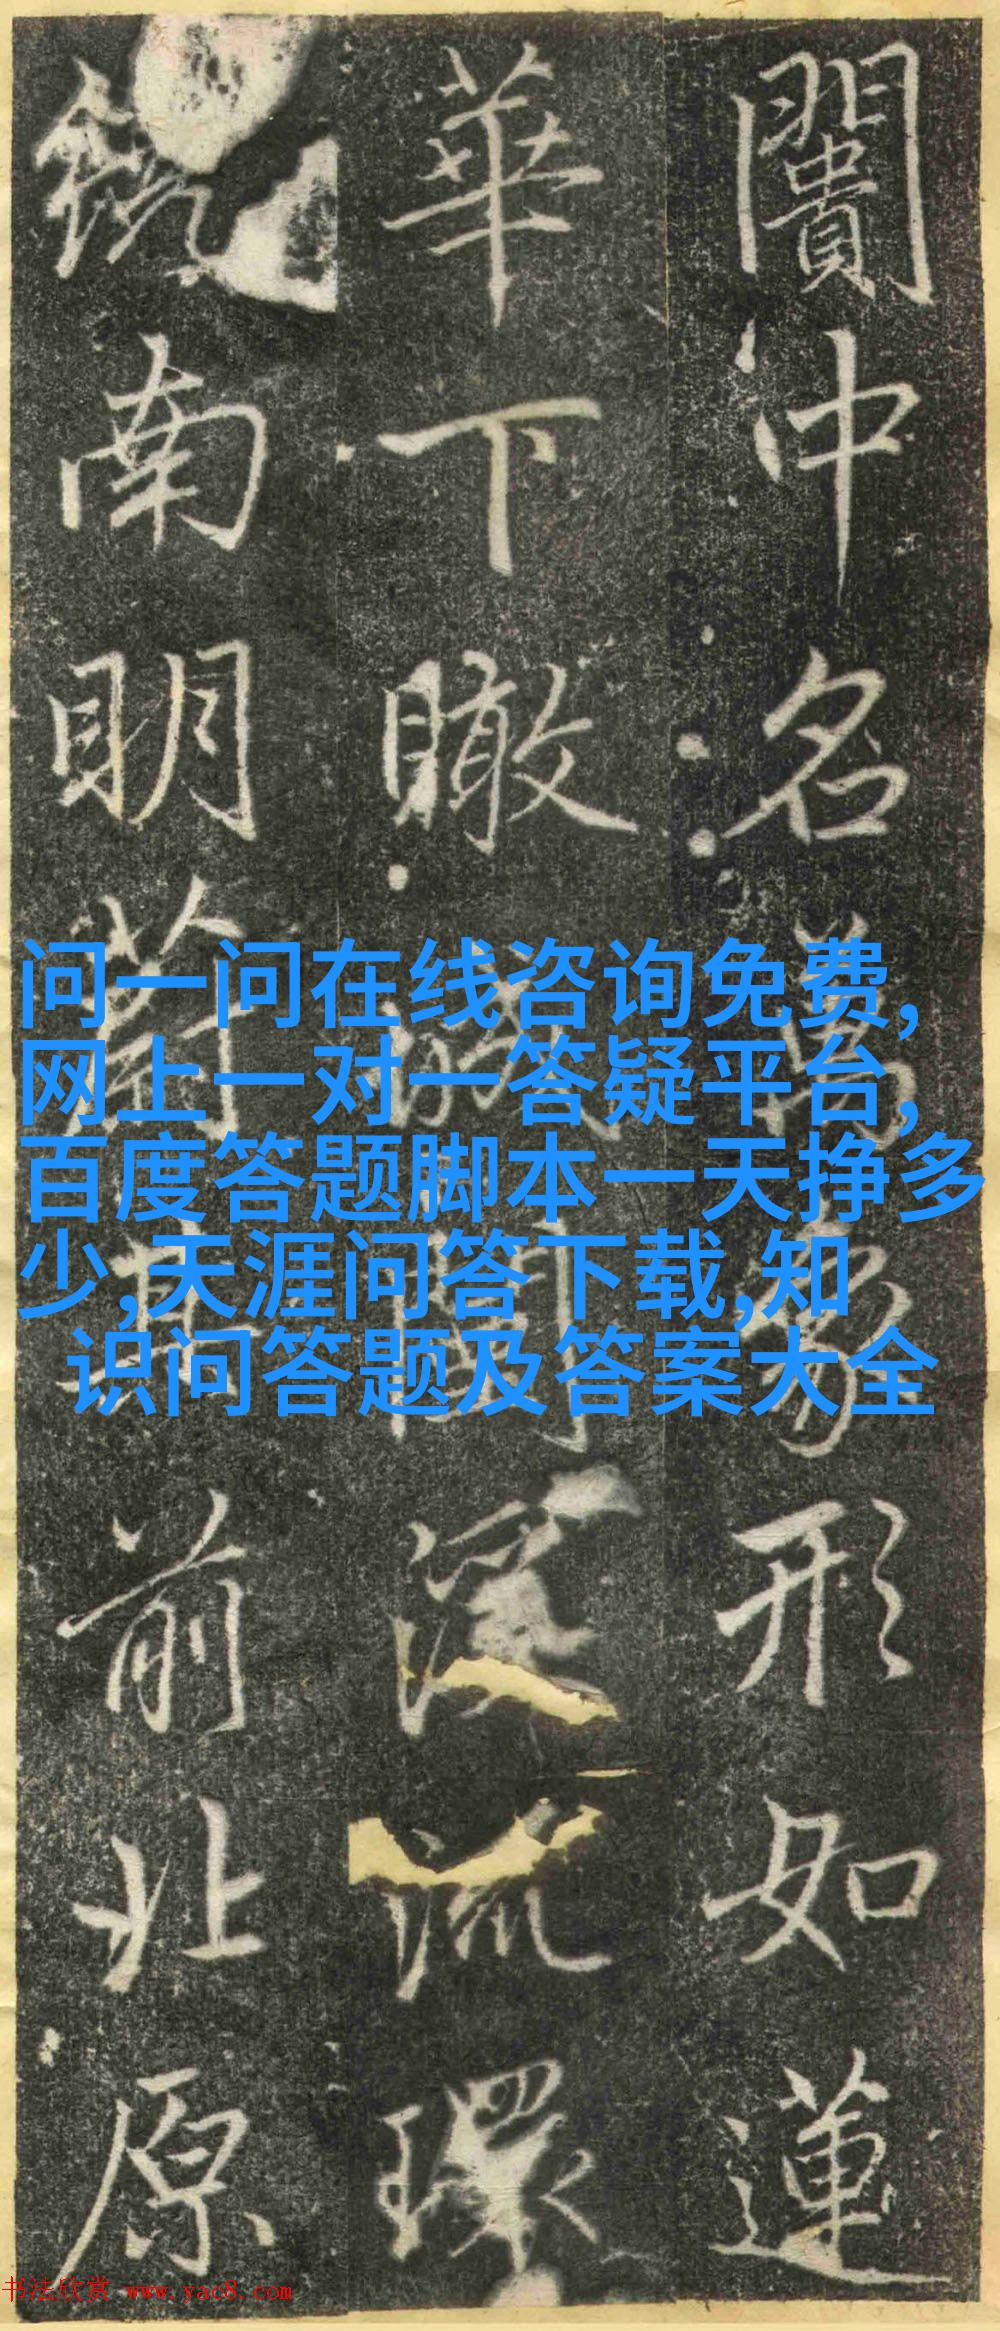 闠冲名萬象形如蓮
華下瞰城闉深流環
南明蔚其前北原
问一问在线咨询免费,
网上一对一答疑平台,
百度答题脚本一天挣多
少,天涯问答下载,知
识问答题及答案大全
书法欣赏 www.yac8.com